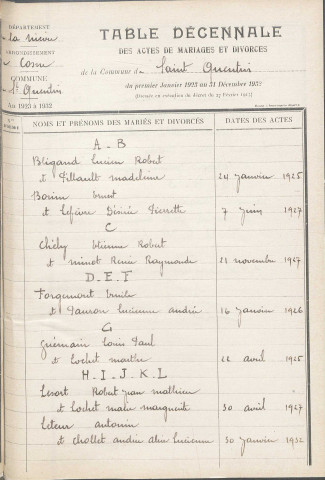 DÉPARTEMENT
de la Nièvre
ARRONDISSEMENT
de Cosne
COMMUNE
St Quentin
Au 1923 à 1932
TABLE DÉCENNALE
DES ACTES DE MARIAGES ET DIVORCES
de la Commune de Saint Quentin
du premier Janvier 1923 au 31 Décembre 1932
(Dressée en exécution du décret du 27 Février 1913)
NOMS ET PRÉNOMS DES MARIÉS ET DIVORCÉS
DATES DES ACTES
A - B
Blégand Lucien Robert
et Pillault Madeleine 24 Janvier 1925
Ernest
et Lefèvre Désirée Pierrette 7 Juin 1927
C
Etienne Robert
et Minot Renée Raymonde 11 novembre 1927
D. E. F
Forgemont Emile
et Dauron Lucienne Andrée 16 Janvier 1926
G
Guémain Louis Paul
et Lochet Marthe 22 avril 1925
H. I. J. K. L
Lesort Robert Jean Mathieu
et Lochet Marie Marguerite 30 avril 1927
Leteur Antonin
et Chollet Andrée Lucienne 30 Janvier 1932